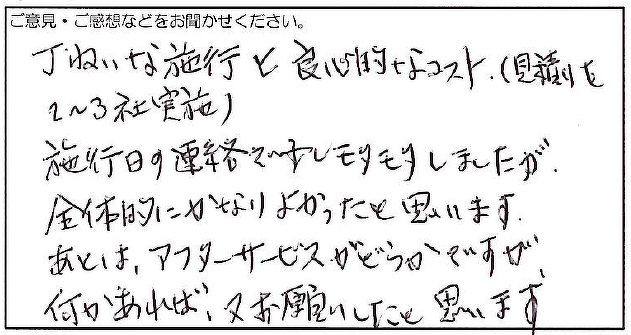 ご意見・ご感想などをお聞かせください。
丁ねいな施行と良心的なコスト.(見積りを
2〜3社実施)
施行日の連絡で少しモタモタしましたが.
全体的にかなりよかったと思います.
あとは,アフターサービスがどうかですが
何かあれば,又お願いしたいと思います